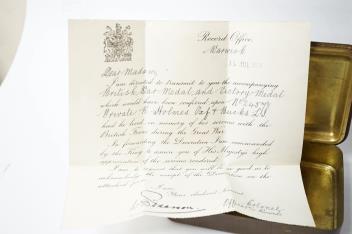 Record Office,
Warwick
Dear Madam,
I am directed to transmit to you the accompanying
British War Medal and Victory Medal
which would have been conferred upon No 24579
Private R. Holmes Oxf & Bucks L.I.
had he lived in memory of his services with the
British Forces during the Great War.
In forwarding the Decoration I am commanded
by the King to assure you of His Majesty's high
appreciation of the services rendered.
I am to request that you will be so good as to
acknowledge the receipt of the Decoration on the
attached
I am,
Your obedient Servant
Colonel